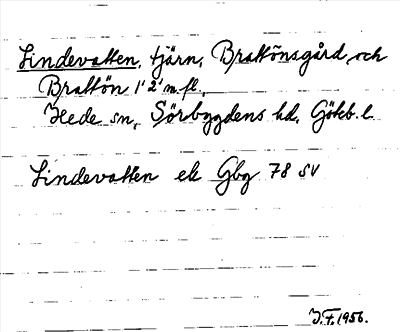 Lindevatten, tjärn, Brattönsgård, och
Brattön 1' 2' m.fl.,
Hede sn, Sörbygdens hd, Götkb. l.
Lindevatten ek Gbg 78 SV
J.F. 1956.